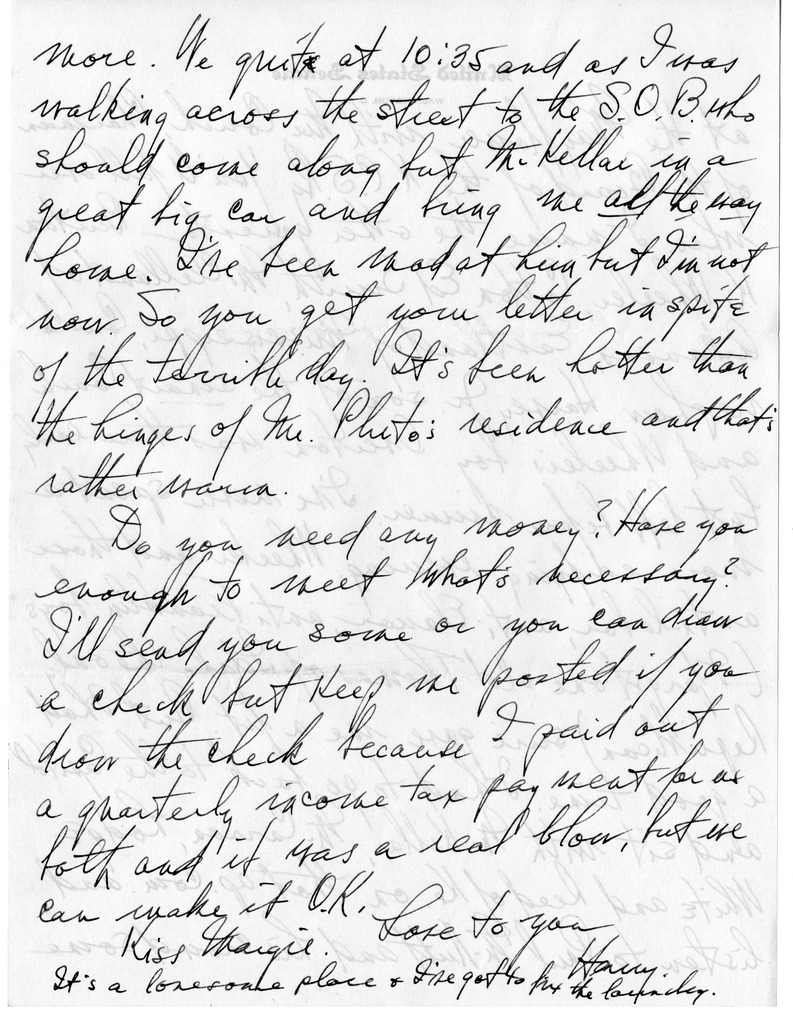 more. We quit at 10:35 and as I was
walking across the street to the S.O.B. who
should come along but McKellar in a
great big car and bring me all the way
home. I've been mad at him but I'm not
now. So you get your letter in spite
of the terrible day. It's been hotter than
the hinges of Mr. Pluto's residence and that's
rather warm.
Do you need any money? Have you
enough to meet what's necessary?
I'll send you some or you can draw
a check but keep me posted if you
draw the check because I paid out
a quarterly income tax payment for us
both and it was a real blow, but we
can make it O.K.
Love to you
Kiss Margie.
Harry.
It's a lonesome place & I've got to fix the laundry.